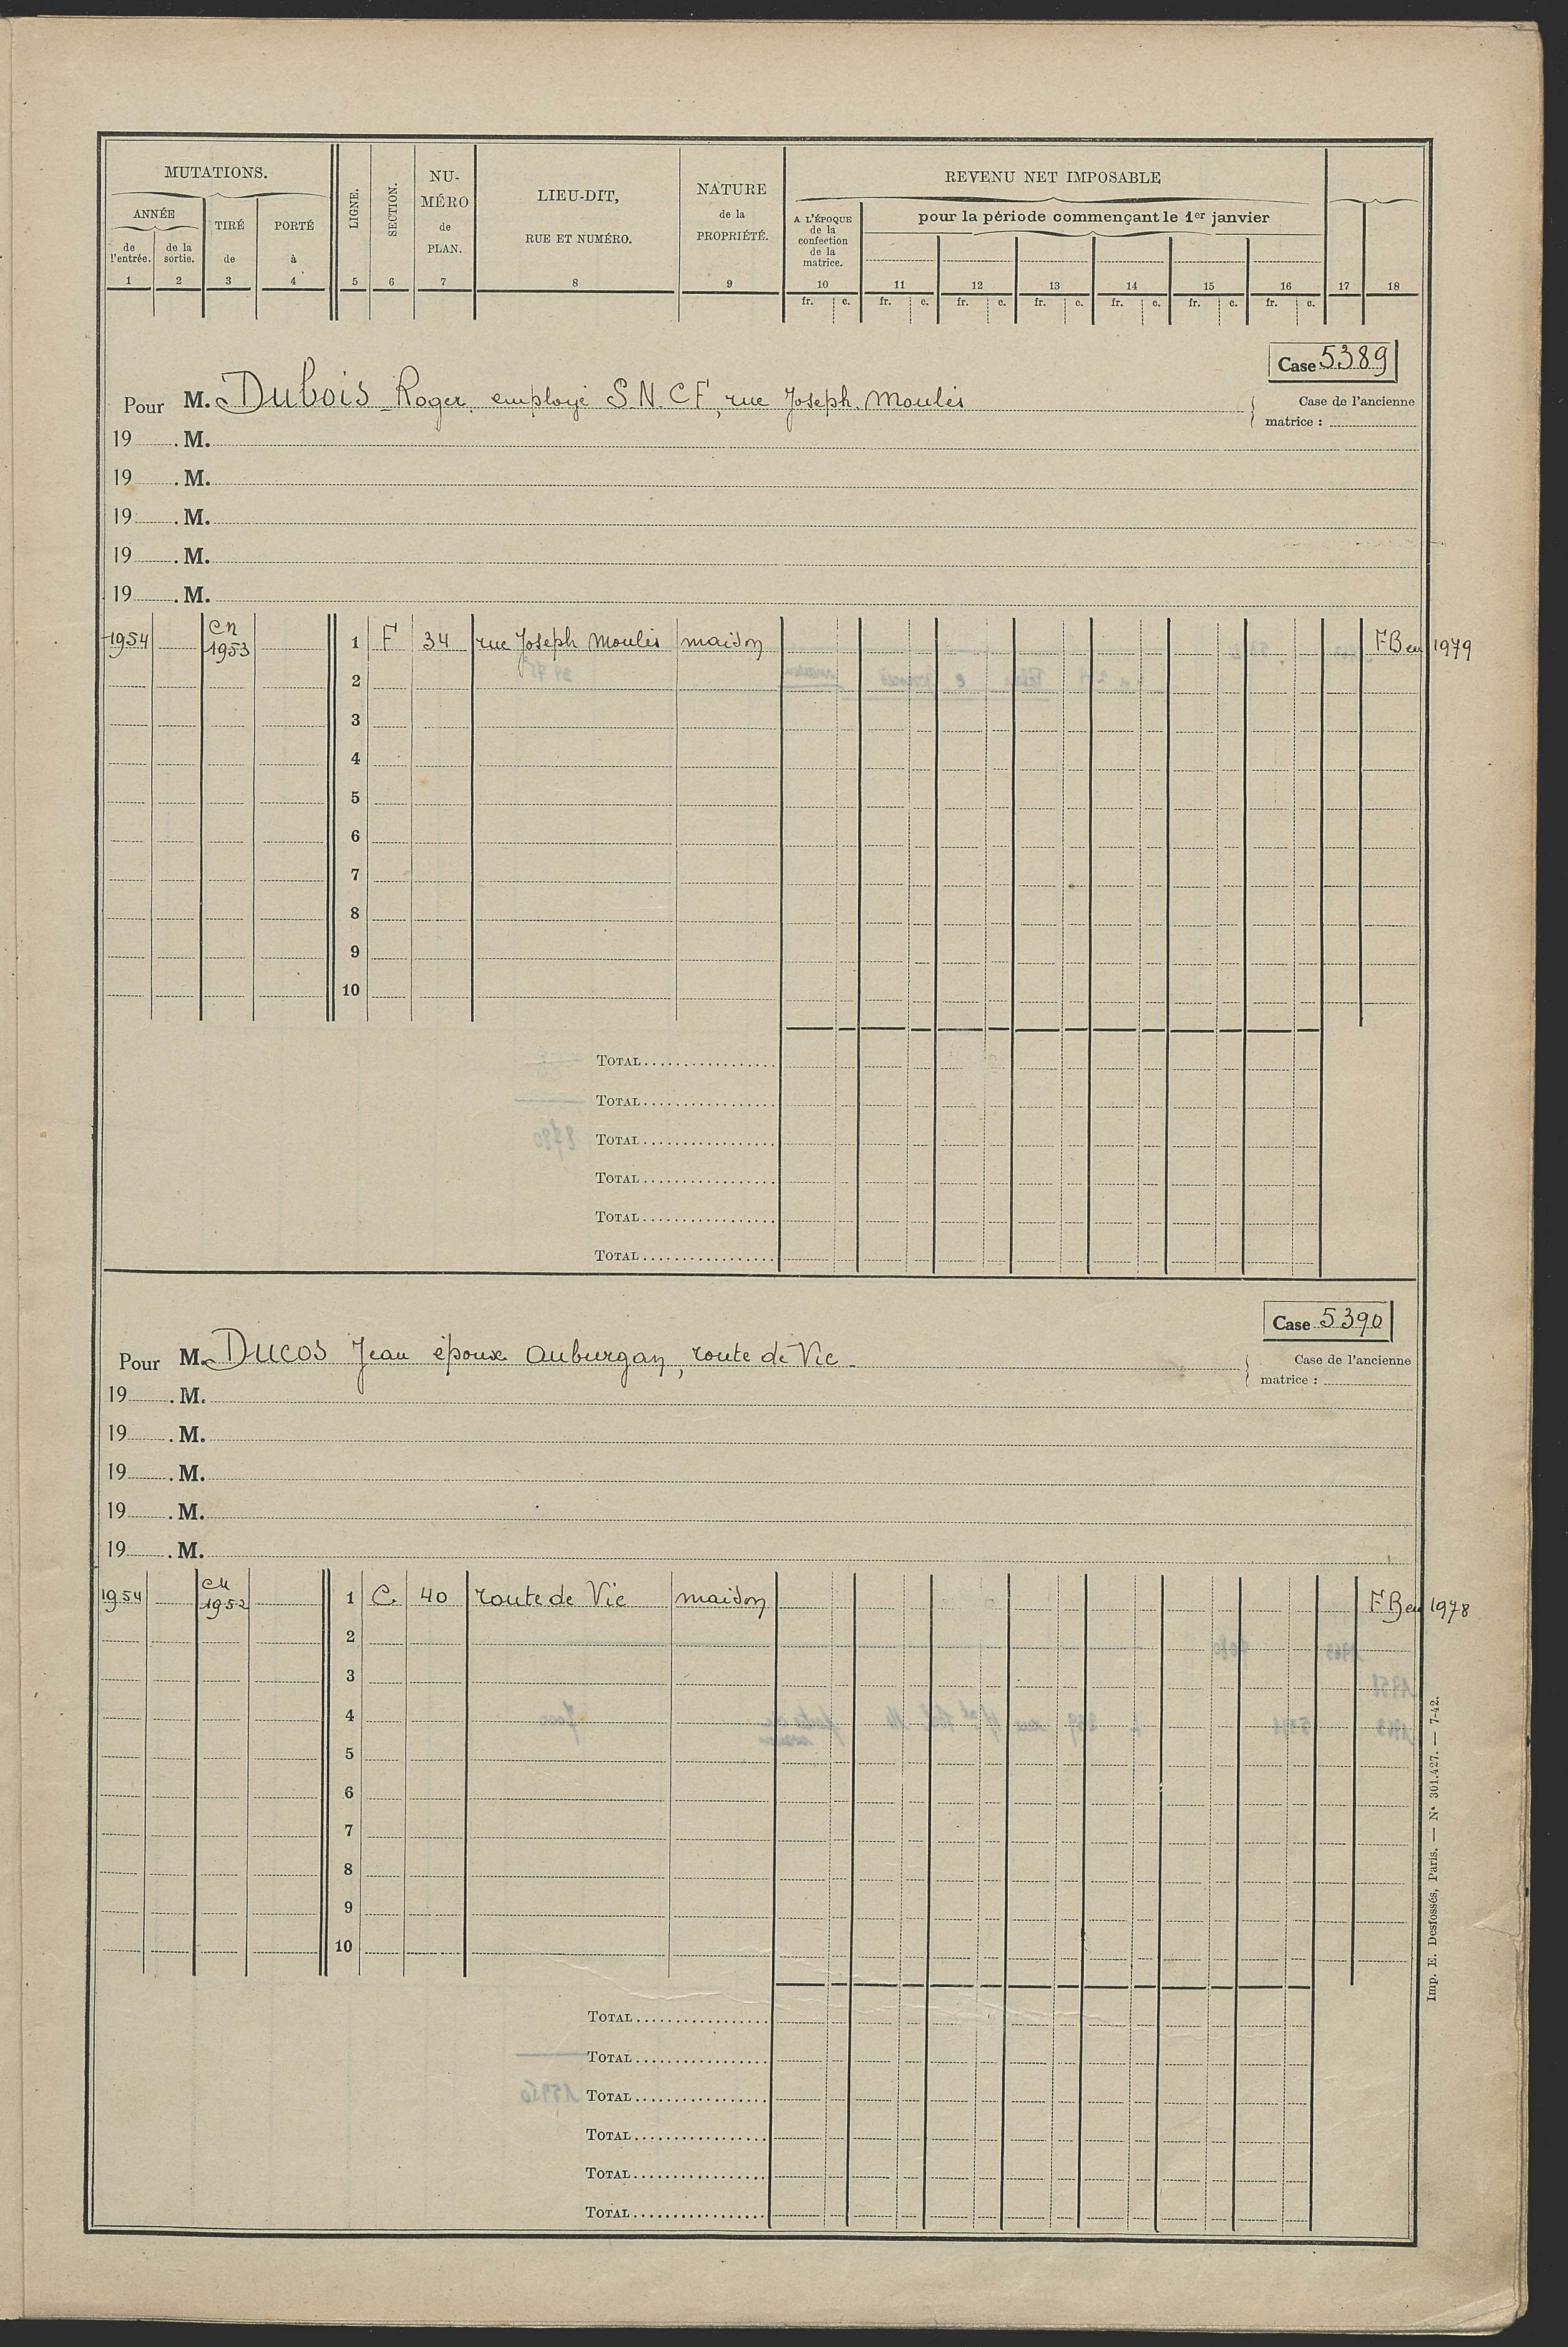 MUTATIONS.
ANNÉE
de l'entrée.
de la sortie.
TIRÉ de
PORTÉ à
LIGNE.
SECTION.
NU-
MÉRO
de
PLAN.
LIEU-DIT,
RUE ET NUMÉRO.
NATURE
de la
PROPRIÉTÉ.
REVENU NET IMPOSABLE
A L'ÉPOQUE
de la
confection
de la
matrice.
pour la période commençant le 1er janvier
1 2 3 4 5 6 7 8 9 10 11 12 13 14 15 16 17 18
fr. c. fr. c. fr. c. fr. c. fr. c. fr. c. fr. c.
Case 5389
Pour M. Dubois Roger, employé S.N.C.F, rue Joseph. Moulès
Case de l'ancienne
matrice :
19 . M.
19 . M.
19 . M.
19 . M.
19 . M.
1954 cn 1953 1 F 34 rue Joseph Moulès maison FB en 1979
2
3
4
5
6
7
8
9
10
TOTAL
TOTAL
TOTAL
TOTAL
TOTAL
TOTAL
Case 5390
Pour M. Ducos Jean époux Auburgan, route de Vic
Case de l'ancienne
matrice :
19 . M.
19 . M.
19 . M.
19 . M.
19 . M.
1954 cn 1952 1 C. 40 route de Vic maison FB en 1978
2
3
4
5
6
7
8
9
10
TOTAL
TOTAL
TOTAL
TOTAL
TOTAL
TOTAL
Imp. E. Desfossés, Paris. — Nº 301.427. — 7-42.